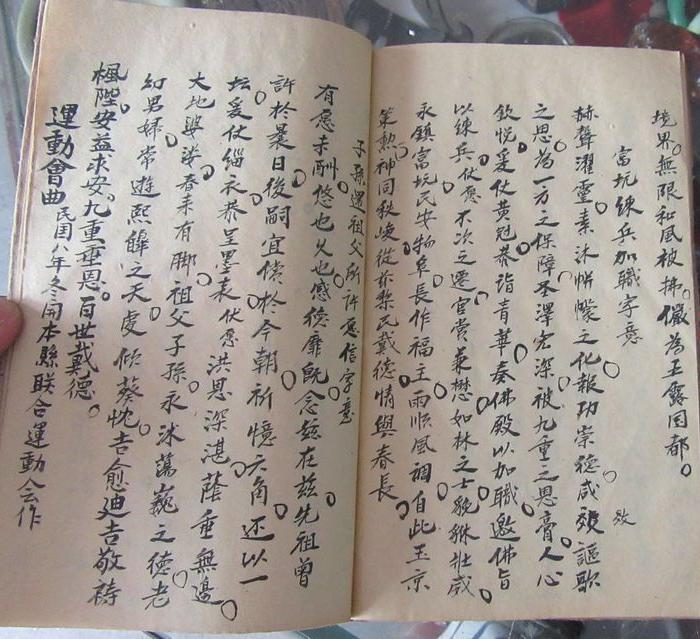 境界。無限和風被拂。儼為玉露国都。
富坑練兵加職字意
赫聲濯靈。素沐帡幪之化。報功崇德。咸效謳歌
效
之思。為一方之保障。圣澤宏深。被九重之恩膏。人心
欽悅。爰仗黄冠。恭詣青華。奏佛殿以加職。邀佛旨
以練兵。伏愿不次之遷。官賞兼懋。如林之士。貔貅壯威。
永鎮富坑。民安物阜。長作福主。雨順風調。自此玉京
策勲。神同秩峻。從茲黎民戴德。情與春長。
子孫還祖父所許愿信字意
有愿未酬。悠也久也。感德靡既。念兹在兹。先祖曾
許於曩日。後嗣宜償於今朝。祈憶六角。还以一
坛。爰仗緇衣。恭呈墨表。伏愿洪恩深湛。蔭垂無邊。
大地婆娑。春来有脚。祖父子孫。永沐蕩巍之德。老
幻男婦。常遊熙皥之天。虔傾葵忱。吉愈迪吉。敬禱
楓陛。安益求安。九重垂恩。百世戴德。
運動會曲 民国八年冬開本縣联合運動会作